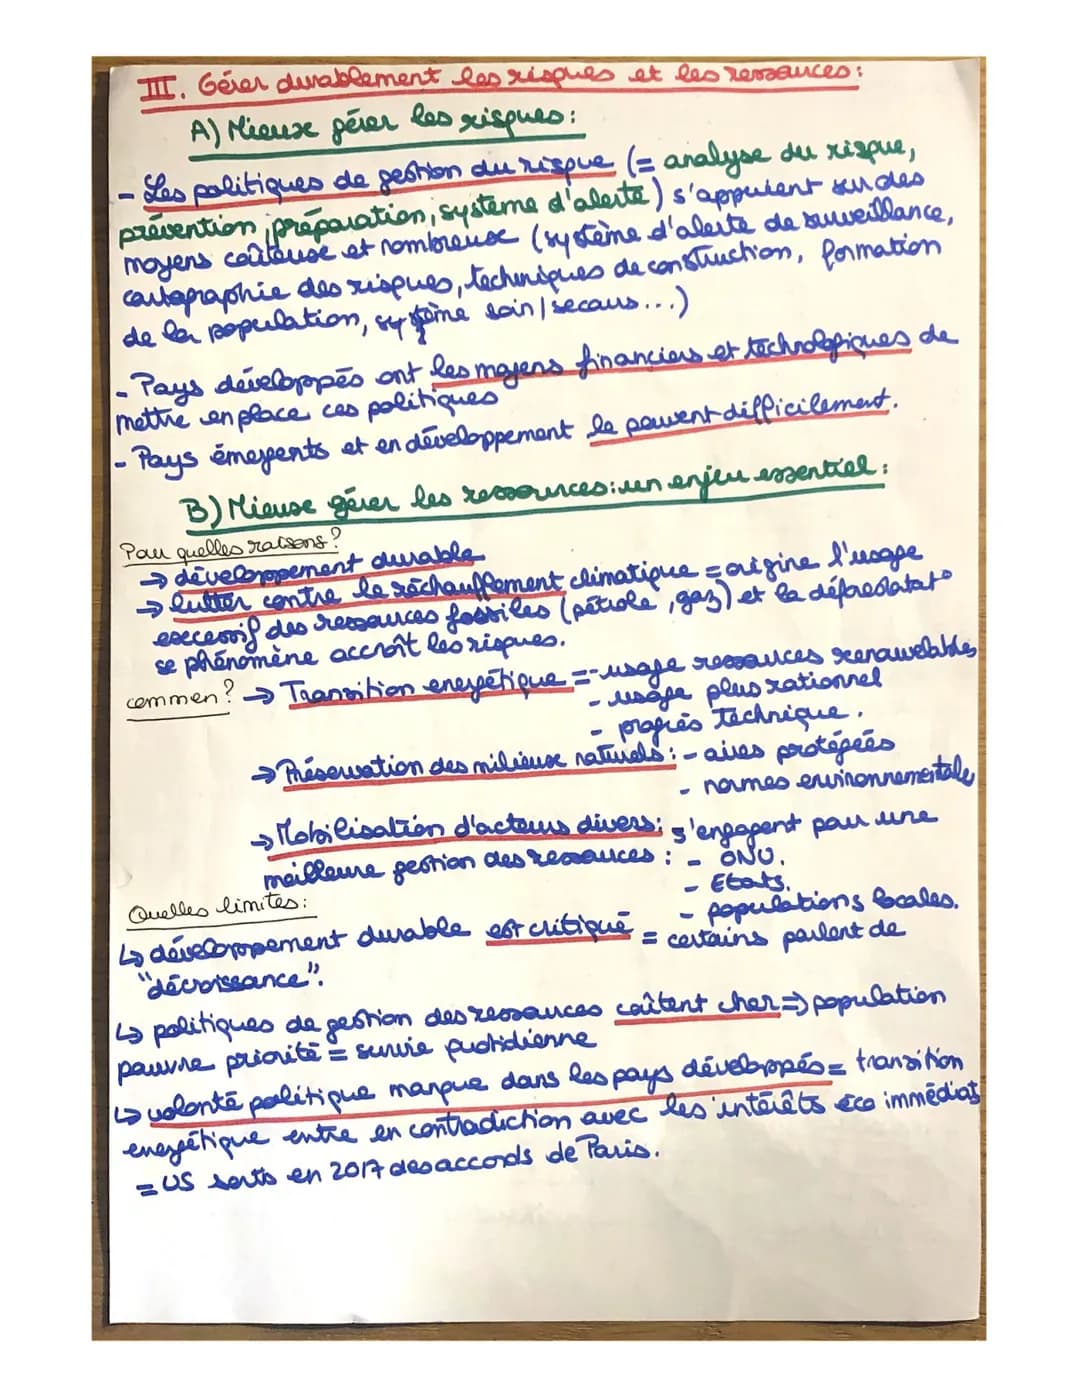 III. Gérer durablement les risques et les ressources :
A) Mieux gérer les risques :
- Les politiques de gestion du risque (= analyse du risque,
prévention, préparation, système d'alerte) s'appuient sur des
moyens coûteuse et nombreuse (système d'alerte de surveillance,
cartographie des risques, techniques de construction, formation
de la population, système soin / secours...)
- Pays développés ont les moyens financiers et technologiques de
mettre en place ces politiques
- Pays émergents et en développement le peuvent difficilement.
B) Mieuse gérer les ressources : un enjeu essentiel :
Pour quelles raisons ?
→ développement durable
→ lutter contre le réchauffement climatique = origine l'usage
excessif des ressources fossiles (pétrole, gaz) et la déforestat°
se phénomène accroît les risques.
commen? → Transition energétique = - usage ressources renouvelables
- usage plus rationnel
- progrès technique.
→ Préservation des milieux naturels : - aires protégées
- normes environnementale
→ Mobilisation d'acteurs divers : s'engagent pour une
meilleure gestion des ressources : - ONU.
- Etats.
- populations locales.
Quelles limites :
↳ développement durable est critiqué = certains parlent de
"décroissance".
↳ politiques de gestion des ressources coûtent cher => population
pauvre priorité = survie quotidienne
↳ volonté politique manque dans les pays développés = transition
energétique entre en contradiction avec les intérêts éco immédiats
= US sorts en 2017 des accords de Paris.